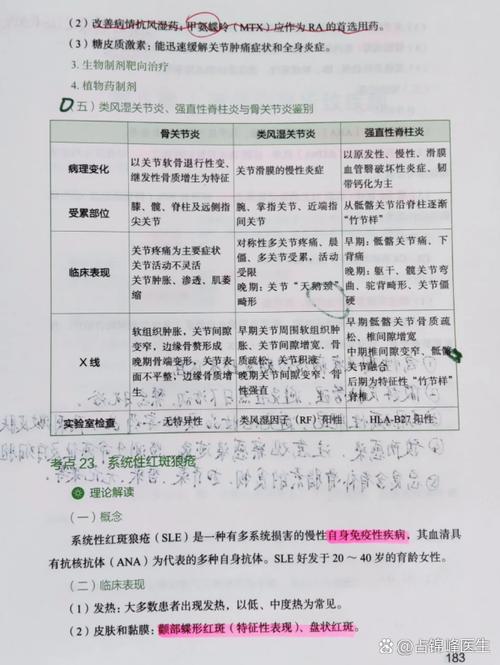 （2）改善病情抗风湿药：甲氨蝶呤（MTX）应作为 RA 的首选用药。
（3）糖皮质激素：能迅速缓解关节肿痛症状和全身炎症。
3. 生物制剂靶向治疗
4. 植物药制剂
（五）类风湿关节炎、强直性脊柱炎与骨关节炎鉴别
骨关节炎 类风湿关节炎 强直性脊柱炎
病理变化
以关节软骨退行性变、
继发性骨质增生为特征
关节滑膜的慢性炎症
以原发性、慢性、滑膜
血管翳破坏性炎症、韧
带钙化为主
受累部位
膝、髋、脊柱及远侧指
尖关节
腕、掌指关节、近端指
间关节
从骶髂关节沿脊柱逐渐
“竹节样”
临床表现
关节疼痛为主要症状
关节活动不灵活
关节肿胀、渗透、肌萎
缩
对称性多关节疼痛、晨
僵、多关节受累，活动
受限
晚期：关节“天鹅颈”
畸形
早期：骶髂关节痛、下
背痛
晚期：躯干、髋关节弯
曲、驼背畸形、关节僵
硬
X 线
软组织肿胀，关节间隙
变窄，边缘骨赘形成
晚期骨端变形，关节表
面不平整，边缘骨质增
生
早期关节周围软组织肿
胀、关节间隙增宽、骨
质疏松、关节积液
晚期关节间隙变窄，骨
性强直
早期骶髂关节骨质疏
松、椎间隙增宽
中期椎间隙变窄、骶髂
关节融合
后期为特征性“竹节样”
脊椎
实验室检查 无特异性 类风湿因子（RF）阳性 HLA-B27 阳性
考点 23 系统性红斑狼疮
理论解读
（一）概念
系统性红斑狼疮（SLE）是一种有多系统损害的慢性自身免疫性疾病，其血清具
有抗核抗体（ANA）为代表的多种自身抗体。SLE 好发于 20～40 岁的育龄女性。
（二）临床表现
（1）发热：大多数患者出现发热，以低、中度热为常见。
（2）皮肤和黏膜：颧部蝶形红斑（特征性表现）、盘状红斑。
@占锦峰医生
183